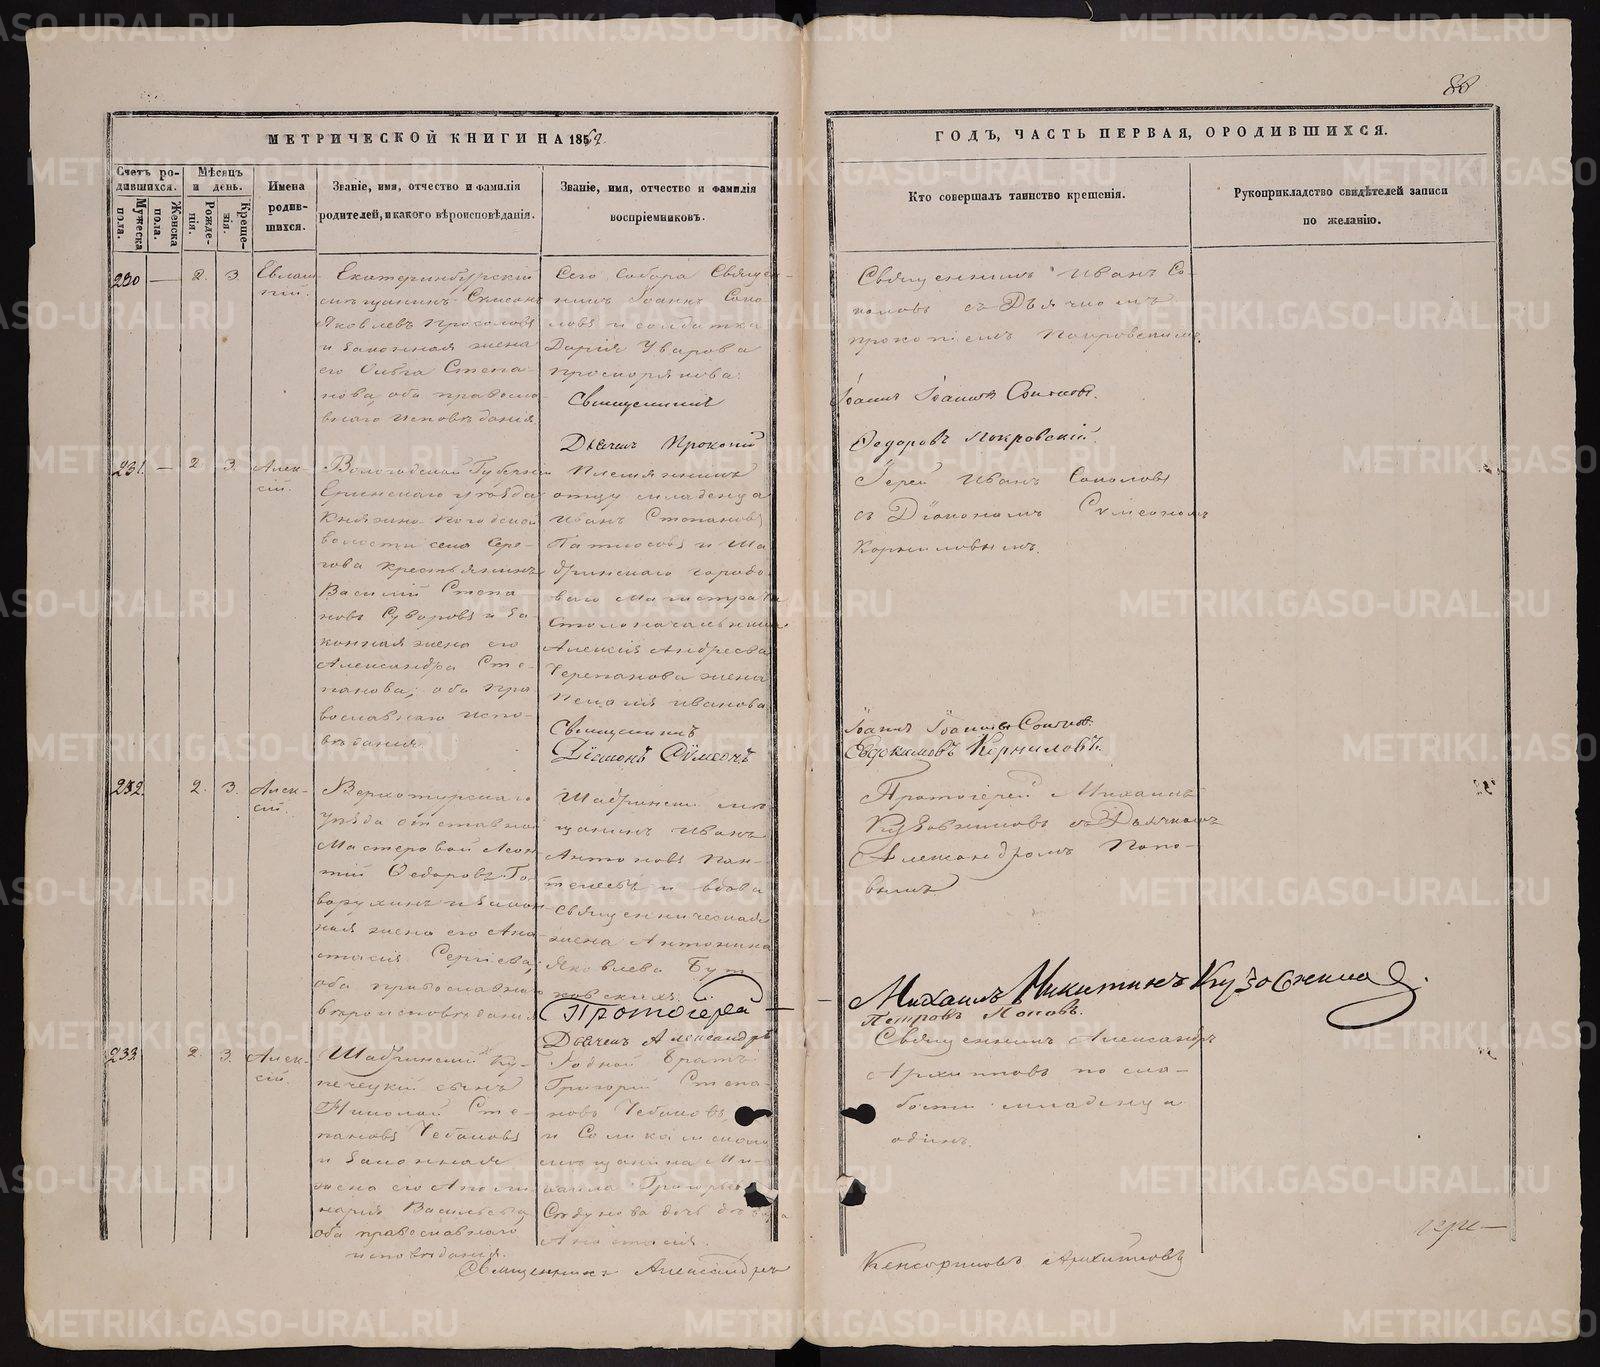 88
МЕТРИЧЕСКОЙ КНИГИ НА 1869.
ГОДЪ, ЧАСТЬ ПЕРВАЯ, О РОДИВШИХСЯ.
Счетъ родившихся.
Мужеска пола.
Женска пола.
Мѣсяцъ и день.
Рожденія.
Крещенія.
Имена родившихся.
Званіе, имя, отчество и фамилія родителей, и какого вѣроисповѣданія.
Званіе, имя, отчество и фамилія воспріемниковъ.
Кто совершалъ таинство крещенія.
Рукоприкладство свидѣтелей записи по желанію.
230 — 2. 3.
Евлам-
пій.
Екатеринбургскій
мѣщанинъ
Яковлевъ
и законная жена
его Ольга Степа-
нова, оба правосла-
внаго исповѣданія
Сего Собора Священ-
никъ Іоаннъ Соко-
ловъ и солдатка
Дарія Уварова
Священникъ
Дьячекъ Прокопій
Священникъ Иванъ Со-
коловъ съ Дьячкомъ
Прокопіемъ Покровскимъ
Іоаннъ Іоанновъ Соколовъ.
Ѳедоровъ Покровскій.
231. — 2 3.
Алек-
сій.
Вологодской Губерніи
уѣзда
волости села Сере-
гова крестьянинъ
Василій Степа-
новъ Суворовъ и за-
конная жена его
Александра Сте-
панова; оба пра-
вославнаго испо-
вѣданія.
Племянникъ
отцу младенца
Иванъ Степановъ
и Ша-
дринскаго городо-
ваго Магистрата
Столоначальника
Алексія Андреева
Черепанова жена
Иванова
Священникъ
Діаконъ Сѵмеонъ
Іерей Иванъ Соколовъ
съ Діакономъ Сѵмеономъ
Корниловымъ.
Іоаннъ Іоанновъ Соколовъ.
Евдокимовъ Корниловъ.
232. 2. 3.
Алек-
сій.
Верхотурскаго
уѣзда отставной
Мастеровой Леон-
тій Ѳедоровъ Го-
ворухинъ и закон-
ная жена его Ана-
стасія Сергіева;
оба православнаго
вѣроисповѣданія
Шадринскій мѣ-
щанинъ Иванъ
Антоновъ Пан-
телеевъ и вдова
священническая
жена Антонина
Яковлева Бут-
Протоіерей
Дьячекъ Александръ
Протоіерей Михаилъ
Кузовниковъ съ Дьячкомъ
Александромъ Попо-
вымъ
Михаилъ Никитинъ Кузовниковъ.
Петровъ Поповъ.
233. 2. 3.
Алек-
сій.
Шадринскій ку-
печескій сынъ
Николай Сте-
пановъ
и законная
жена его Аполи-
нарія Васильева
оба православнаго
исповѣданія.
Родной братъ
Григорій Степа-
новъ
и Соликамскаго
мѣщанина Ми-
хаила Григорьева
дочь дѣвица
Анастасія.
Священникъ Александръ
Священникъ Александръ
Архиповъ по сла-
бости младенца
одинъ.
Кенсориновъ Архиповъ